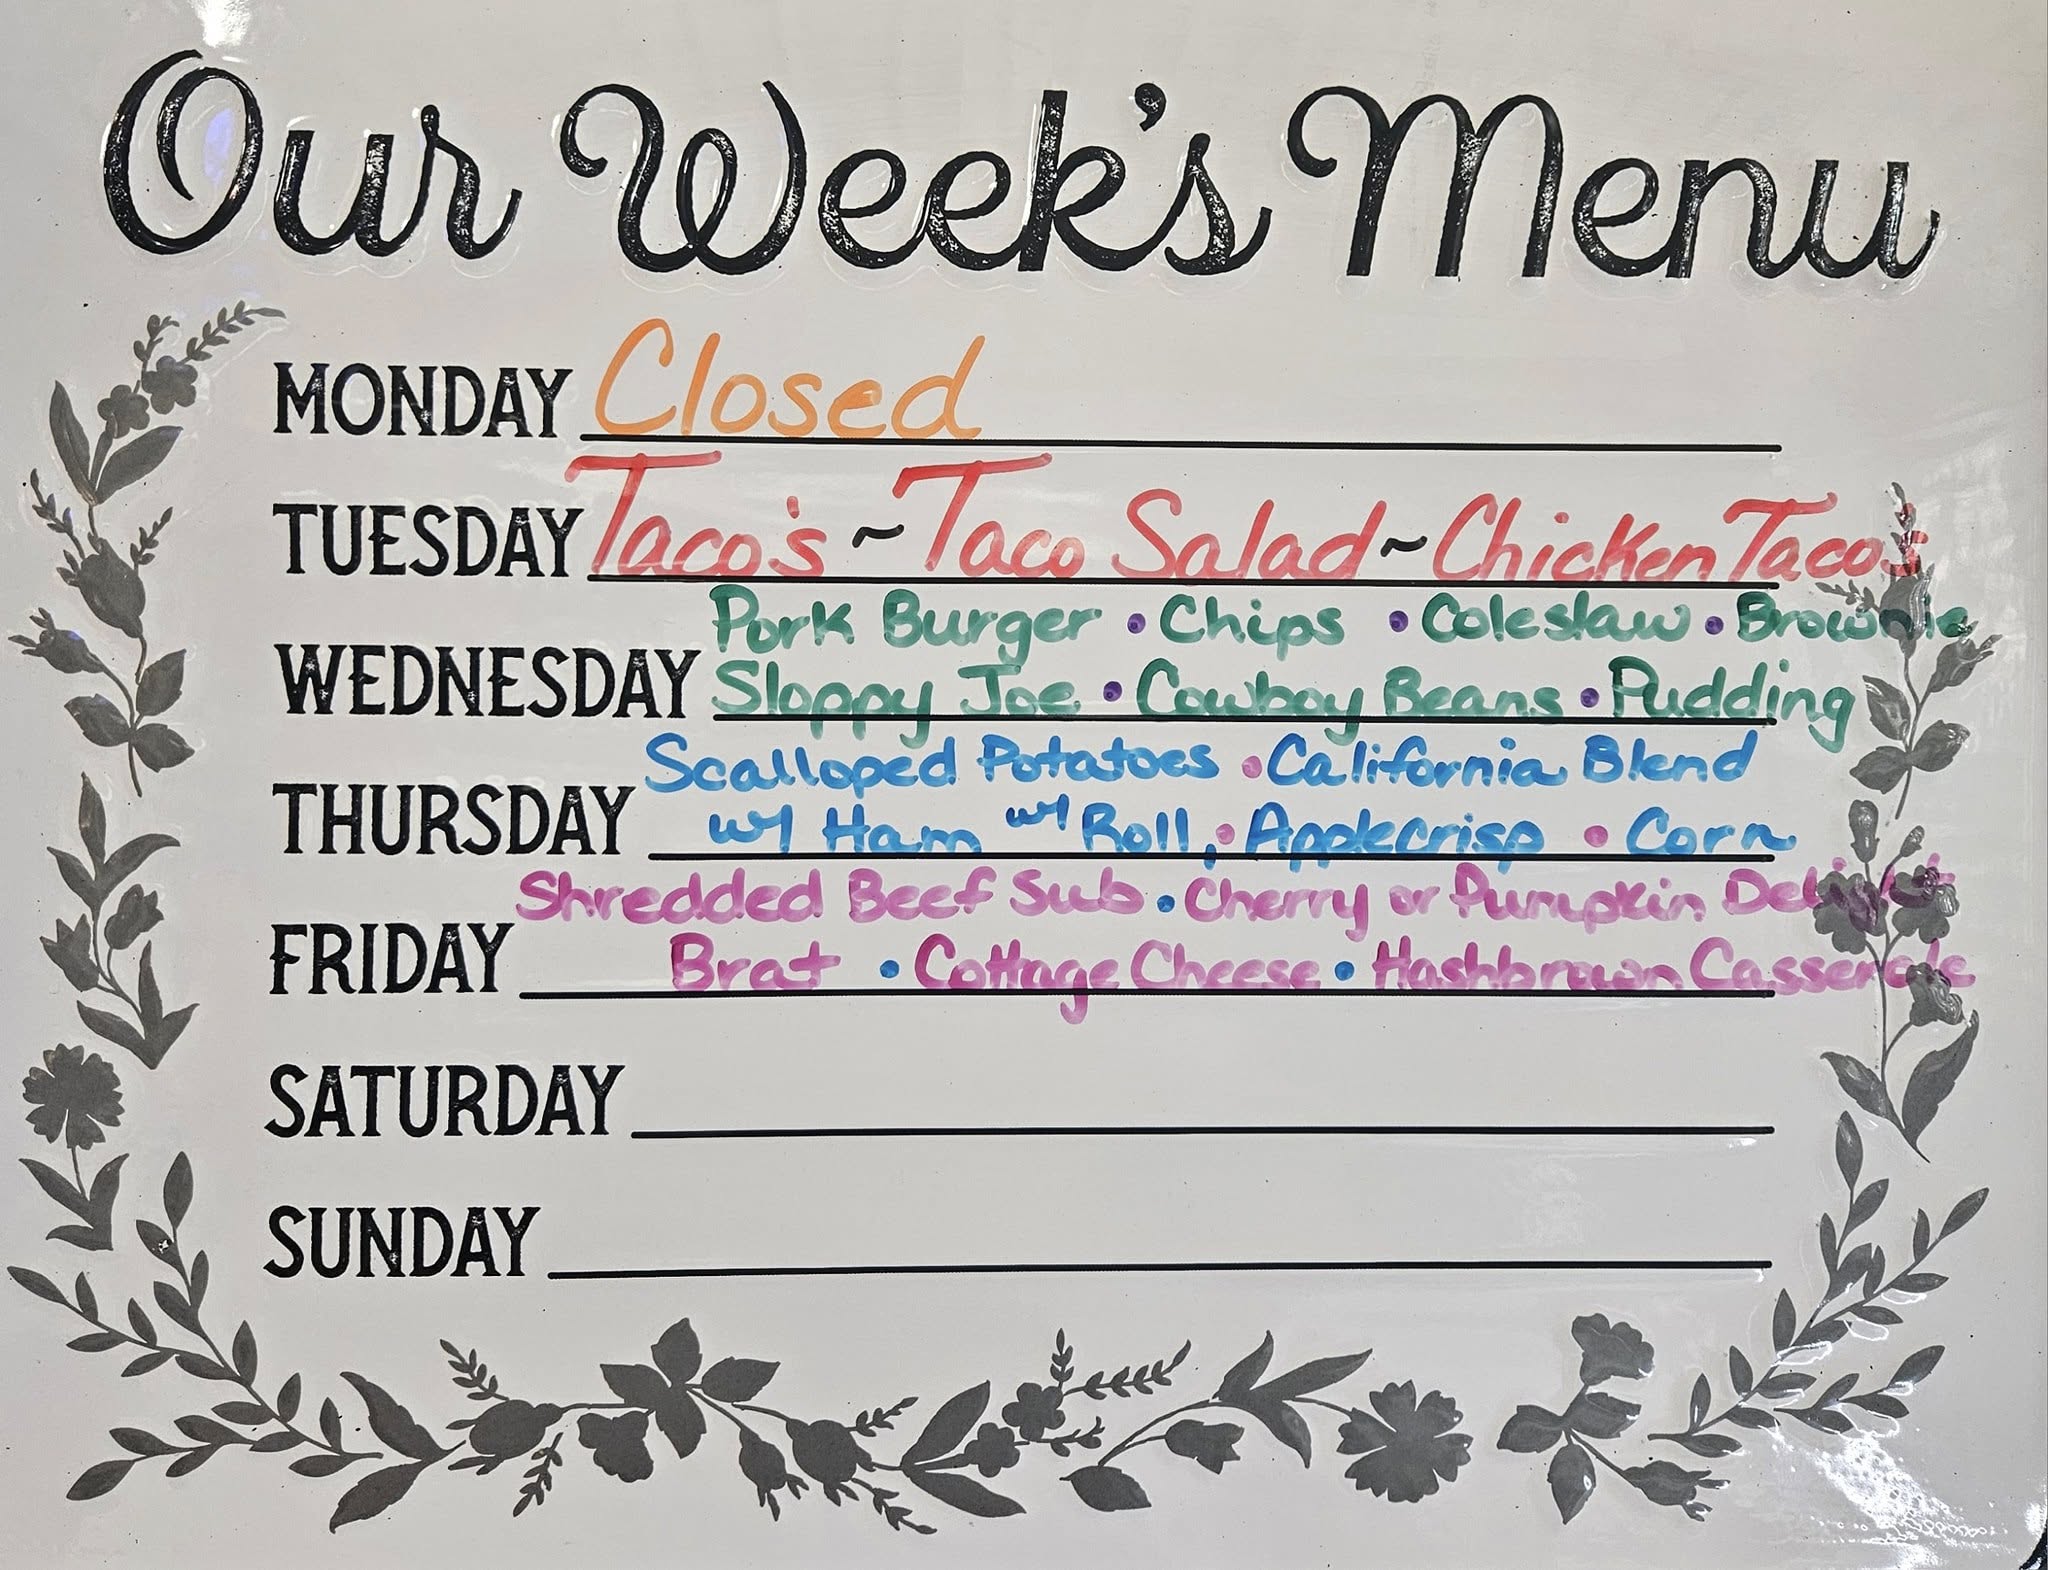 Our Week's Menu
MONDAY Closed
TUESDAY Taco's ~ Taco Salad ~ Chicken Tacos
Pork Burger • Chips • Coleslaw • Brownie
WEDNESDAY Sloppy Joe • Cowboy Beans • Pudding
Scalloped Potatoes • California Blend
THURSDAY w/ Ham w/ Roll, • Applecrisp • Corn
Shredded Beef Sub • Cherry or Pumpkin Delight
FRIDAY Brat • Cottage Cheese • Hashbrown Casserole
SATURDAY
SUNDAY